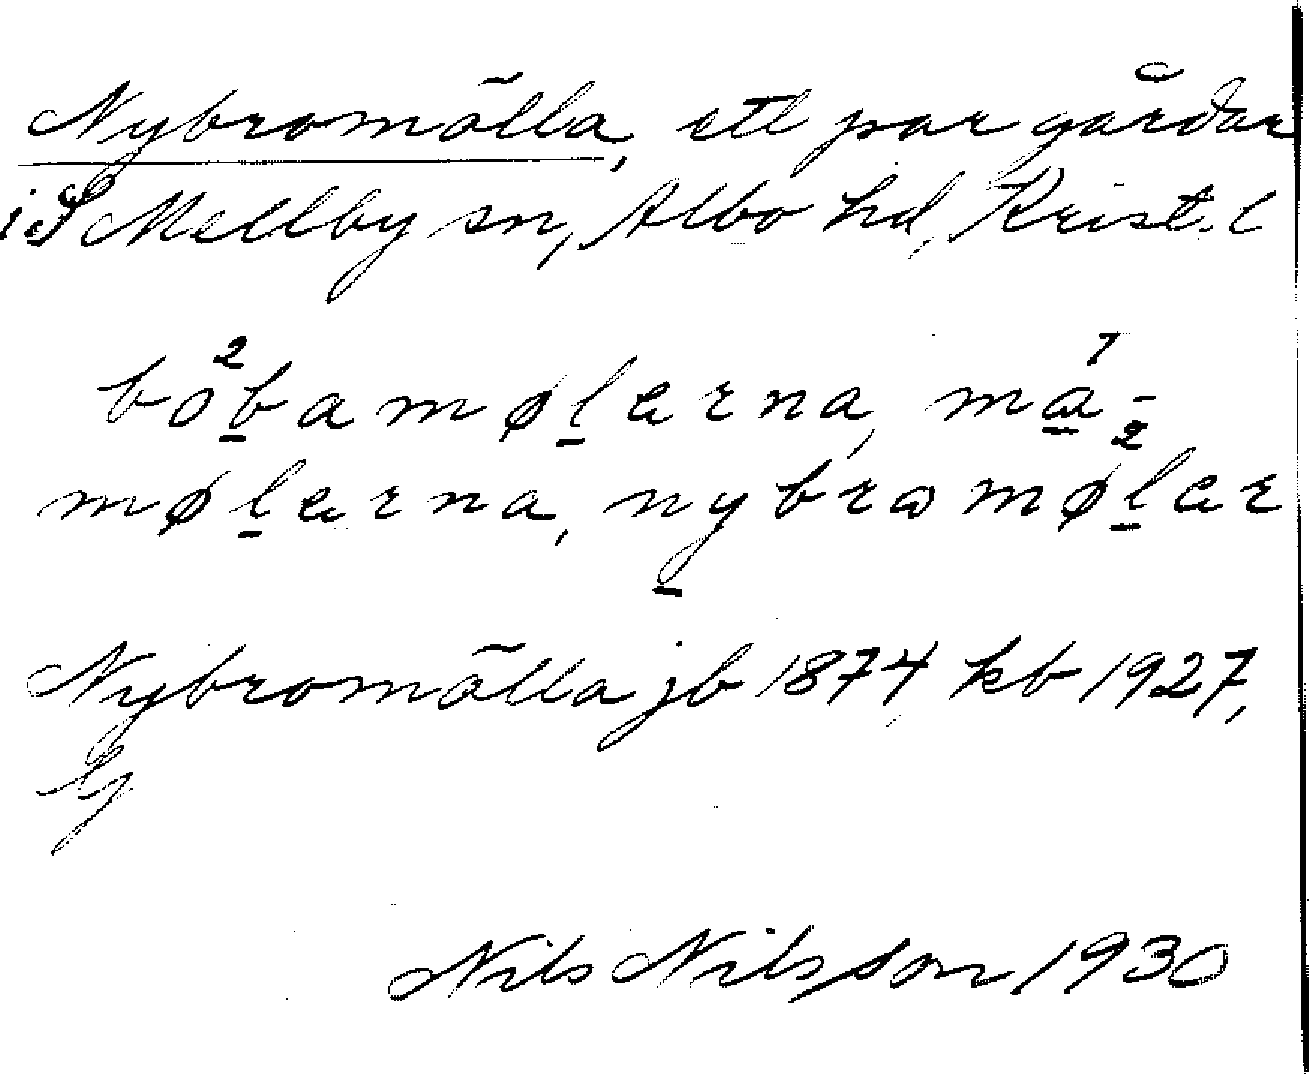 Nybromölla, ett par gårdar
i S Mellby sn, Albo hd, Krist. l
bo²bamølærna, mɑ¹-
mølærna, nybromø²lær
Nybromölla jb 1874 kb 1927,
G
Nils Nilsson 1930